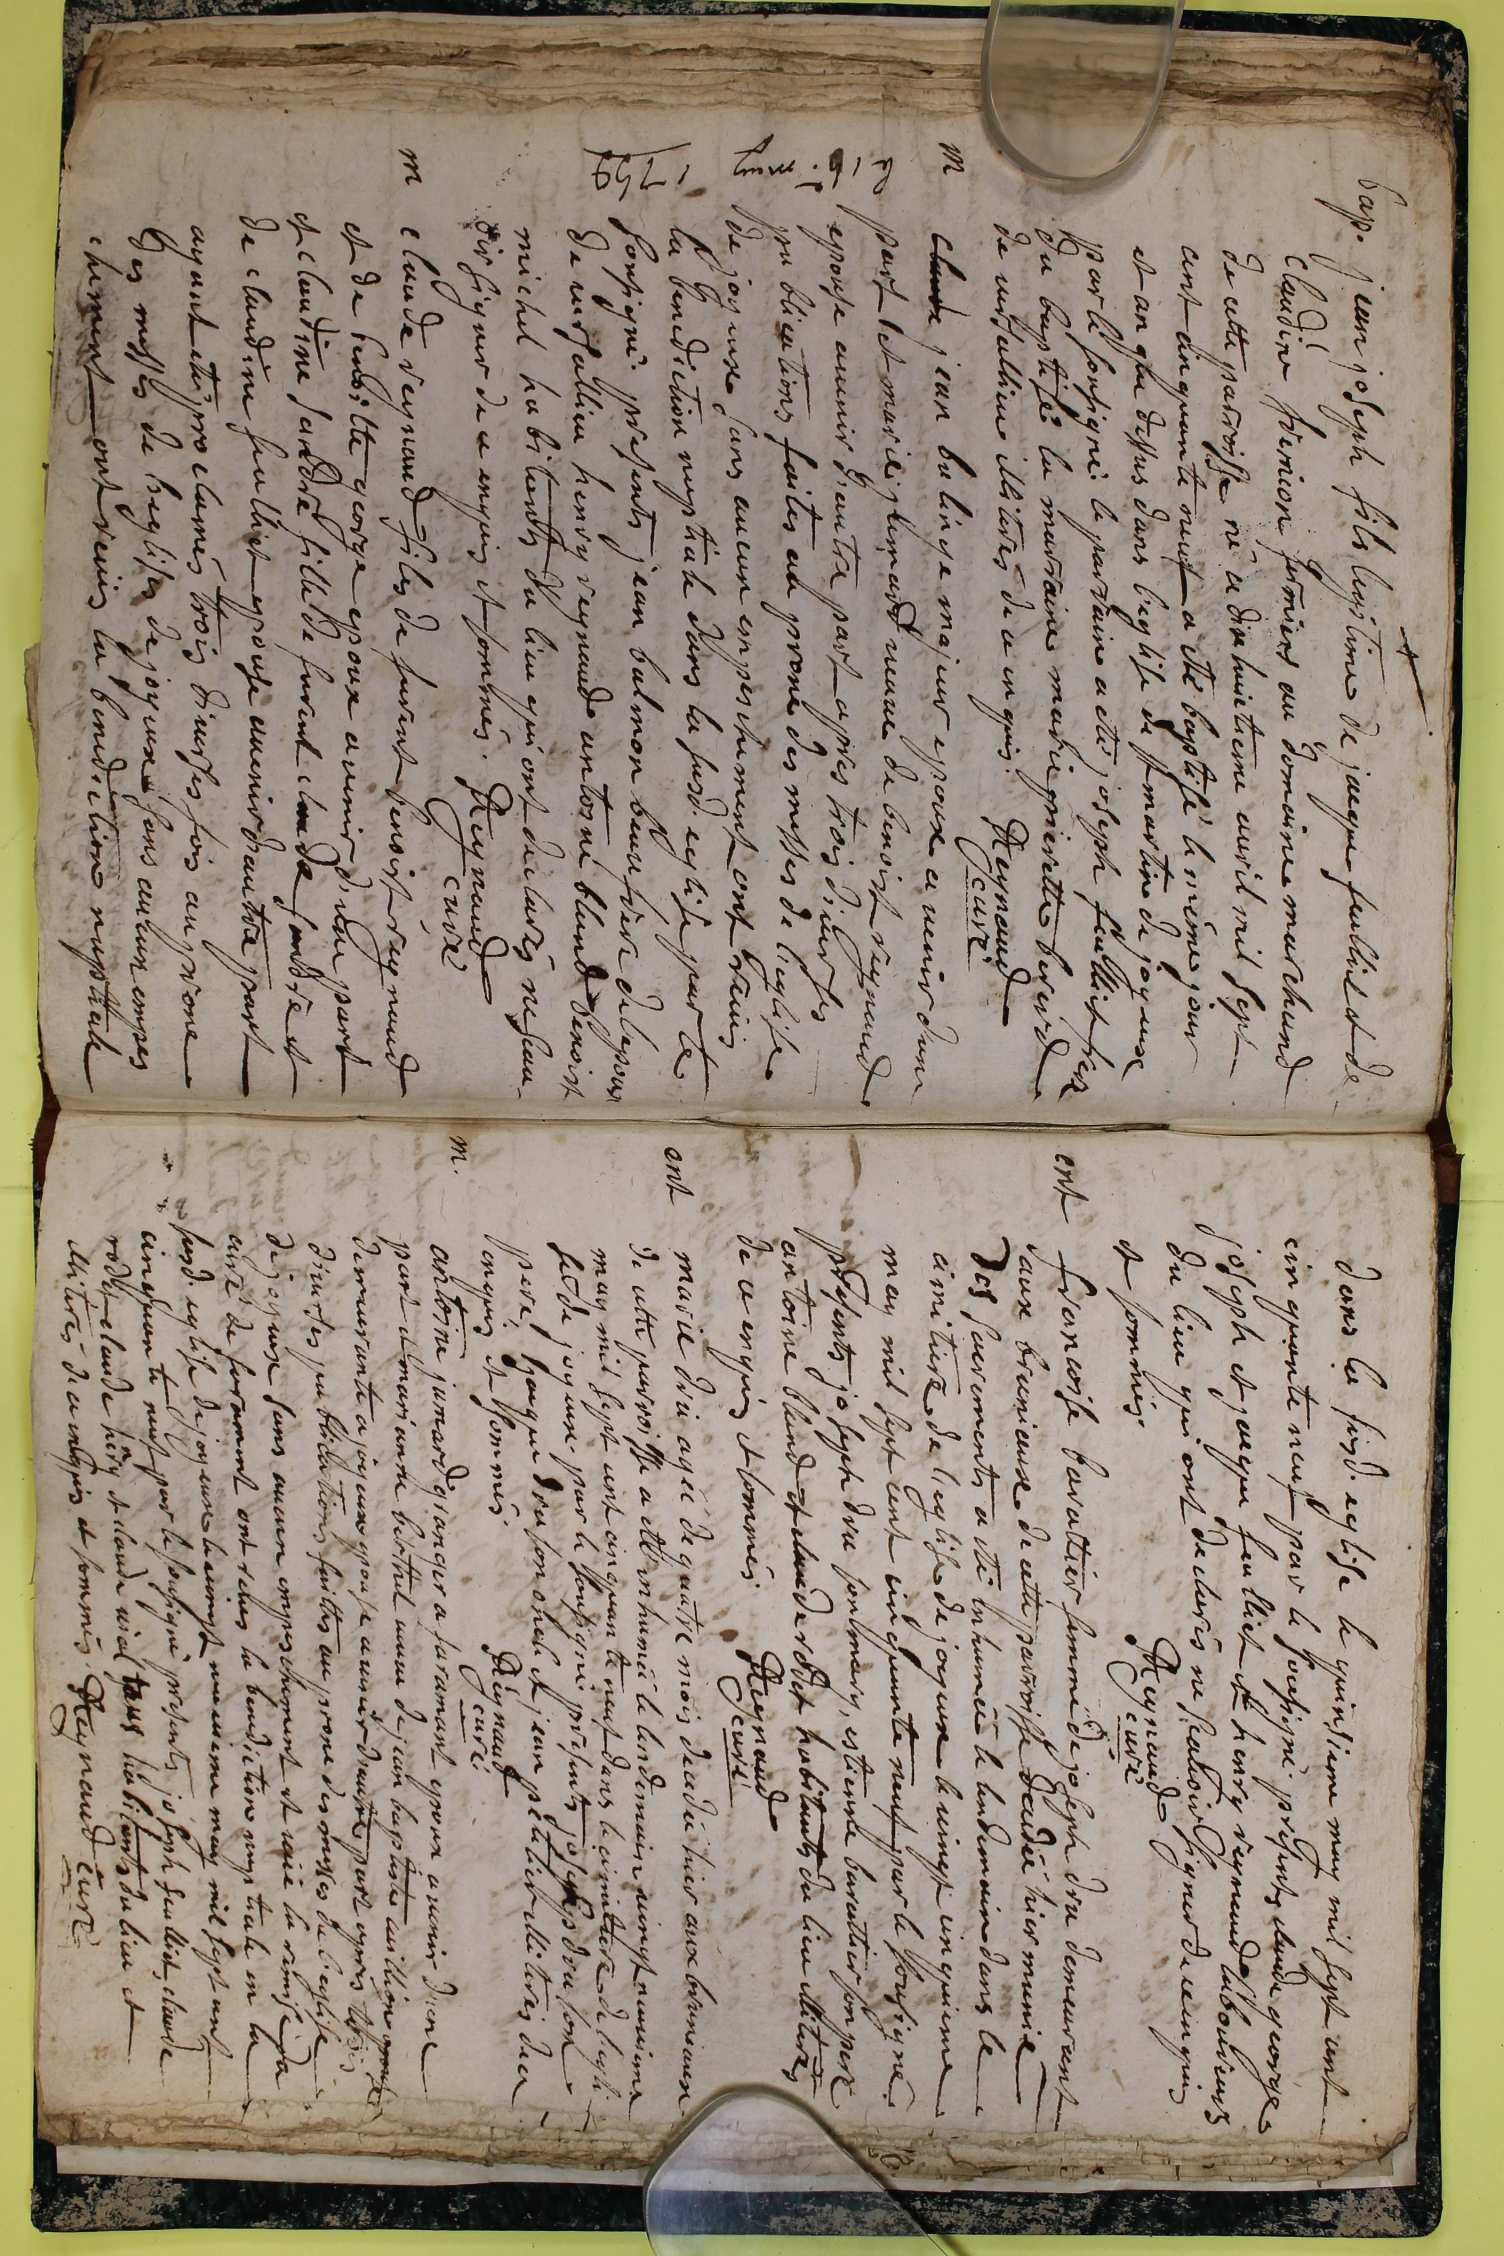 bap. jean joseph fils legitime de jacque fulliet de
claudine premion fermier au domaine marchand
de cette parroisse né a dix huitieme avril mil sept
cent cinquante neuf a eté baptisé le méme jour
et an que dessus dans leglise de st martin de joyeux
par le soussigné le parraine a eté joseph feulliet frere
du baptisé la marraine marie pierrette berard
de versallieu illiteres de ce enquis. Reynaud
curé
m jean balinge majeur epoux a venir d'une
part et marie jumard veuve de benoist reynaud
epouse avenir d'autre part apres trois diverses
publications faites au prone des messes de l'eglise
de joyeux sans aucun empeschement ont recus
la benediction nuptiale dans la susd. eglise par le
soussigné presents jean balmon beaufrere de lepoux
de versallieu henry reynaud antoine bland benoist
michel habitants du lieu qui ont declarés ne scau-
oir signer de ce enquis et sommés. Reynaud
curé
le 15. may 1759
m claude reynaud fils de benoist reynaud
et de george epoux avenir d'une part
et claudine fille de claude et
de claudine fulliet epouse avenir d'autre part
ayant etés proclamés trois diverses fois au prone
des messes de leglise de joyeux sans aucun empes
chement ont recus la benediction nuptiale
dans la susd. eglise le quinsieme may mil sept cent
cinquante neuf par le soussigné. presents claude george
joseph et jacque feulliet et henry reynaud laboureurs
du lieu qui ont declarés ne scavoir signer de ce enquis
et sommés Reynaud
curé
ent francoise baratier femme de joseph dru demeurant
aux brunieux de cette parroisse decedée hier munie
des sacrements a eté inhumée le lendemain dans le
cimitiere de l'eglise de joyeux le vingt cinquieme
may mil sept cent cinquante neuf par le soussigné.
presents joseph dru son mary, estienne baratier son pere
antoine bland et claude rodet habitants du lieu illiteres
de ce enquis et sommés. Reynaud
curé
ent marie dru agée de quatre mois decedée hier aux brunieux
de cette parroisse a eté inhumée le lendemain vingt
may mil sept cent cinquante neuf dans le cimitiere de legli
se de joyeux par le soussigné presents joseph dru son
pere, jacque dru son oncle et jean pelletier illiteres de ce
enquis et sommés. Reynaud
curé
m. antoine jumard granger a faramant epoux avenir d'une
part et marianne berthet veuve de jean baptiste
demeurante a joyeux epouse avenir d'autre part apres trois
diverses publications faittes au prone des messes de l'eglise
de joyeux sans aucun empeschement et veüe la remise du
curé de faramant ont recus la benediction nuptiale en la
susd. eglise de joyeux le vingt may mil sept cent
cinquante neuf par le soussigné presents joseph feulliet, claude
rodet claude hery et claude vial tous habitants du lieu et
illiterés de ce enquis et sommés Reynaud curé